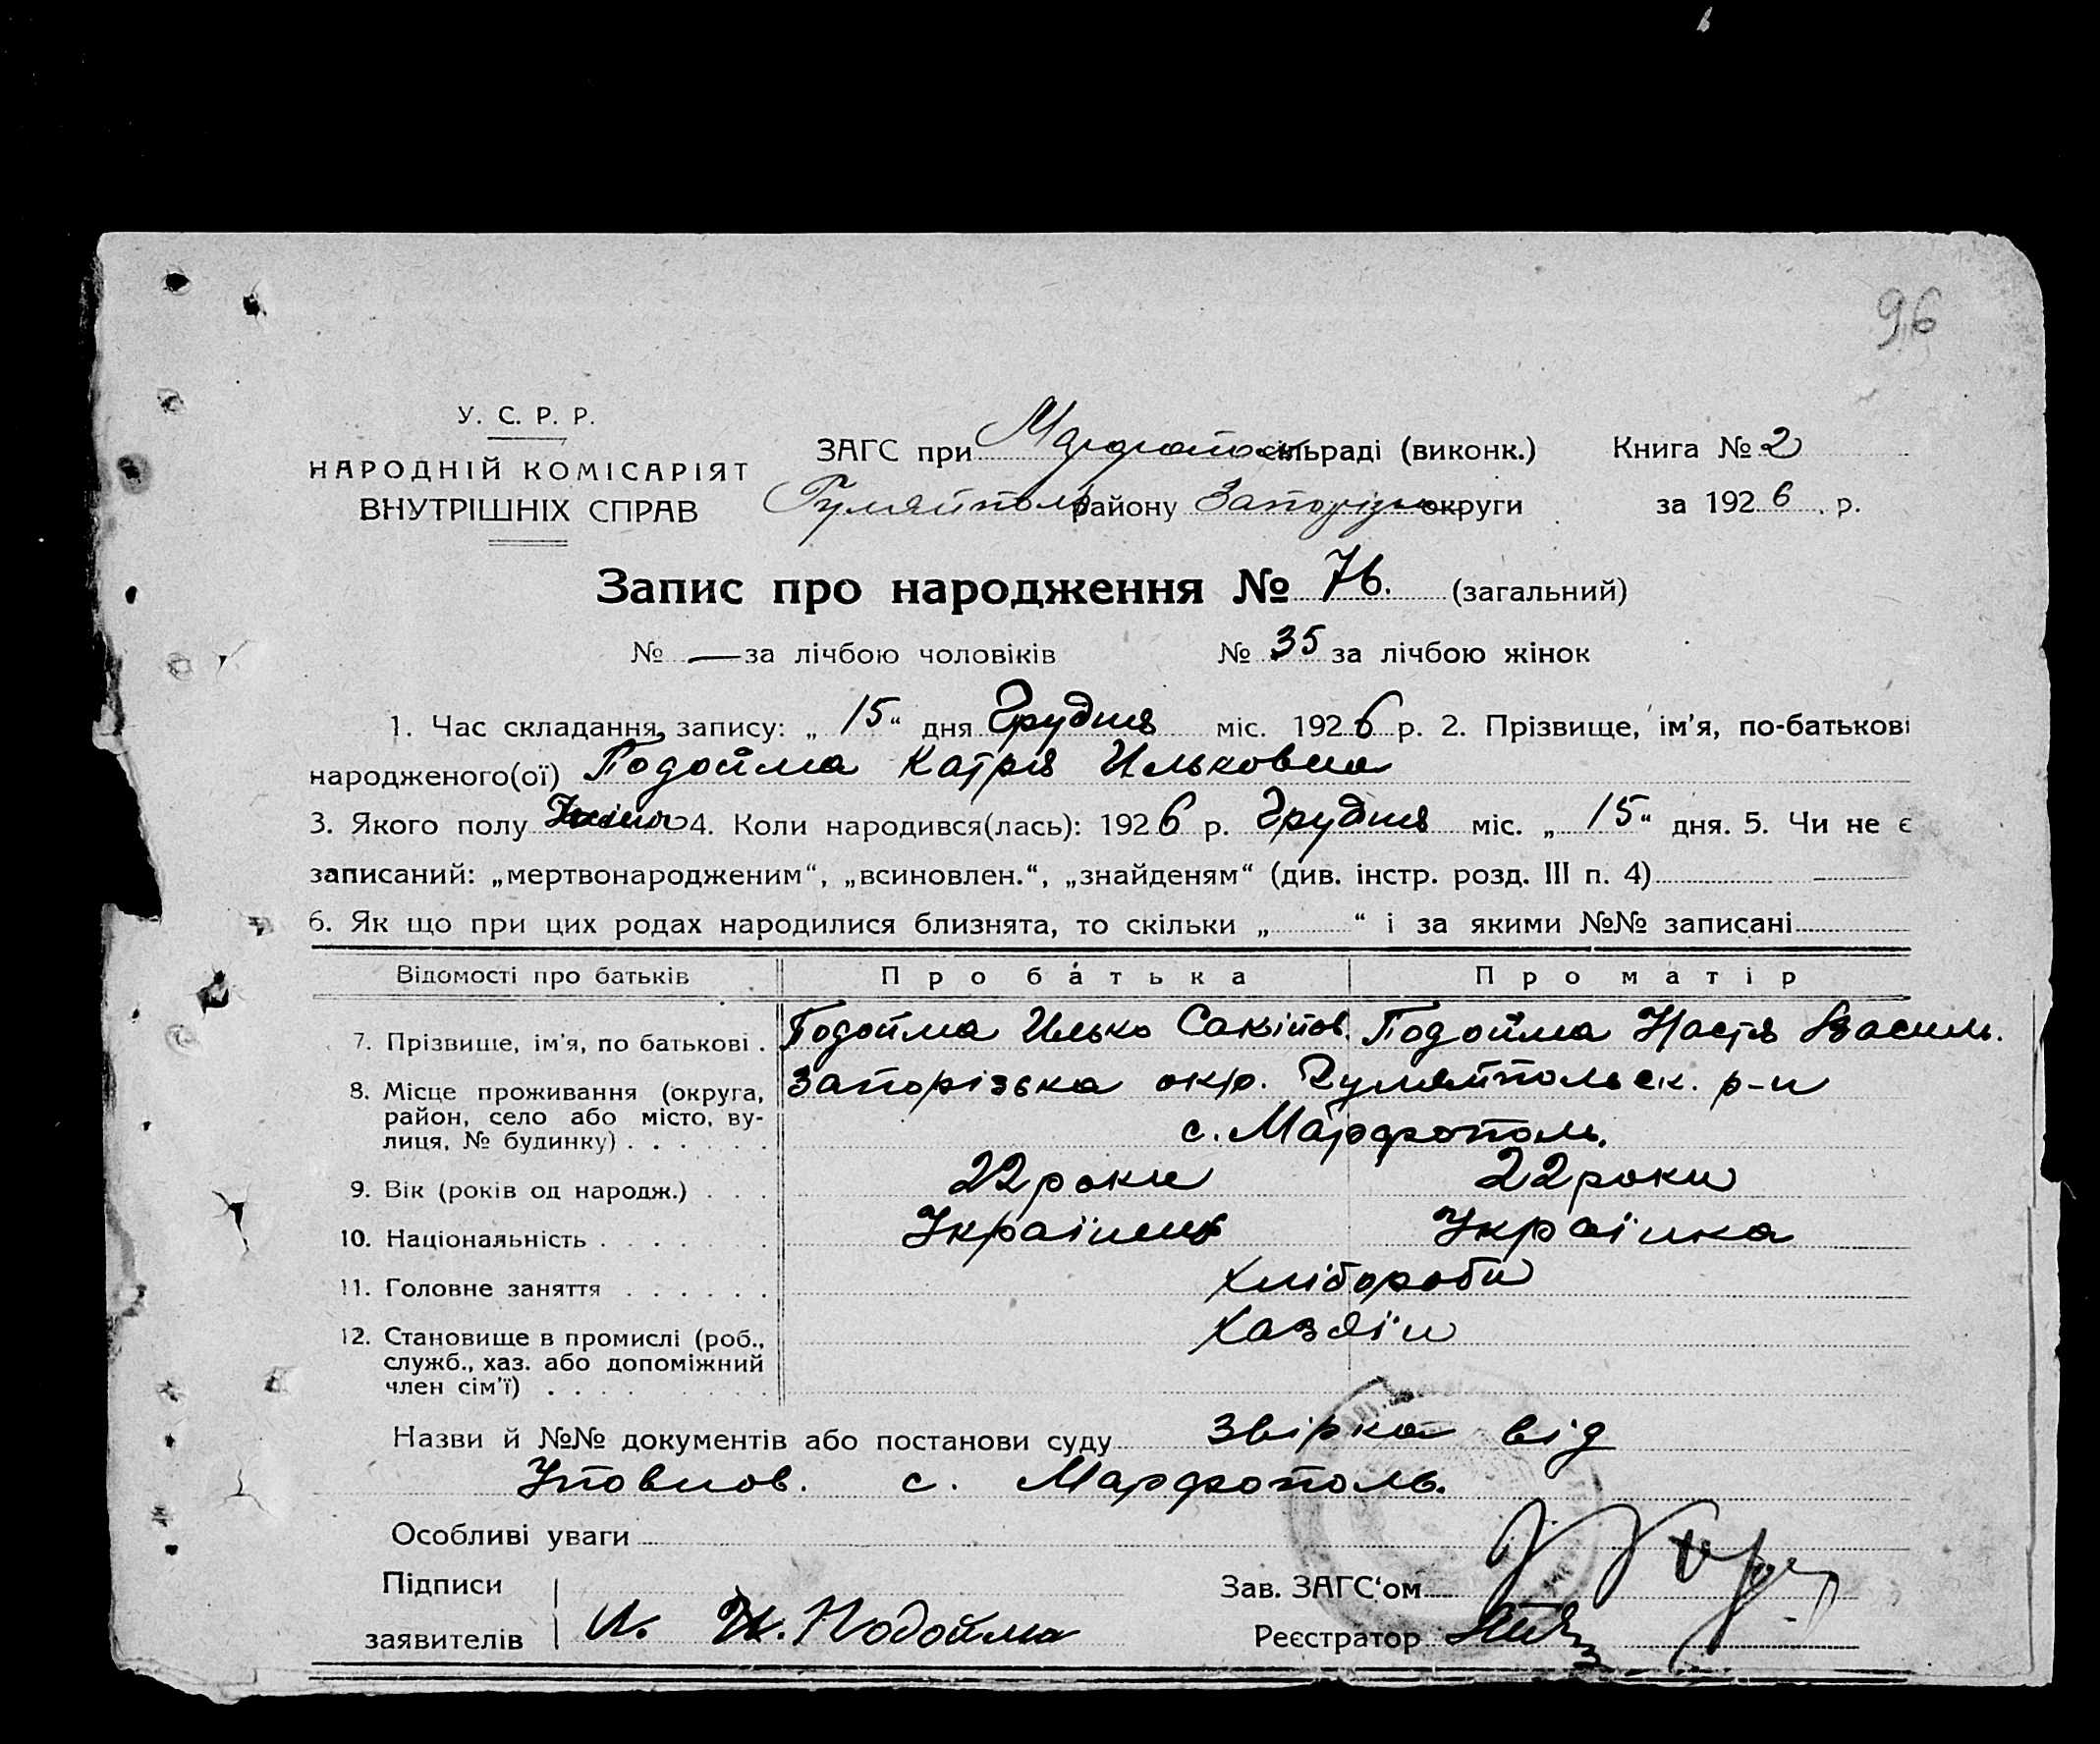 96
У. С. Р. Р.
НАРОДНІЙ КОМІСАРІЯТ
ВНУТРІШНІХ СПРАВ
ЗАГС при Марфопо сільраді (виконк.) Книга № 2
Гуляйполь району Запорізьк округи за 1926 р.
Запис про народження № 76. (загальний)
№ — за лічбою чоловіків № 35 за лічбою жінок
1. Час складання запису: „ 15 “ дня Грудня міс. 1926 р. 2. Прізвище, ім’я, по-батькові
народженого(ої) Подойма Катря Ильковна
3. Якого полу 4. Коли народився(лась): 1926 р. Грудня міс. „ 15 “ дня. 5. Чи не є
записаний: „мертвонародженим“, „всиновлен.“, „знайденям“ (див. інстр. розд. III п. 4)
6. Як що при цих родах народилися близнята, то скільки „ “ і за якими №№ записані
Відомості про батьків Про батька Про матір
7. Прізвище, ім’я, по батькові . Подойма Илько Подойма Настя Василь.
8. Місце проживання (округа, Запорізька окр. Гуляйпольск. р-н
район, село або місто, ву-
лиця, № будинку) . . . . . . с. Марфополь.
9. Вік (років од народж.) . . . 22 роки 22 роки
10. Національність . . . . . . Українець Українка
11. Головне заняття . . . . . . Хлібороби
12. Становище в промислі (роб., Хазяїн
служб., хаз. або допоміжний
член сім’ї) . . . .
Назви й №№ документів або постанови суду Звірка від
Уповнов. с. Марфополь.
Особливі уваги
Підписи Зав. ЗАГС‘ом
заявителів И. Подойма Реєстратор